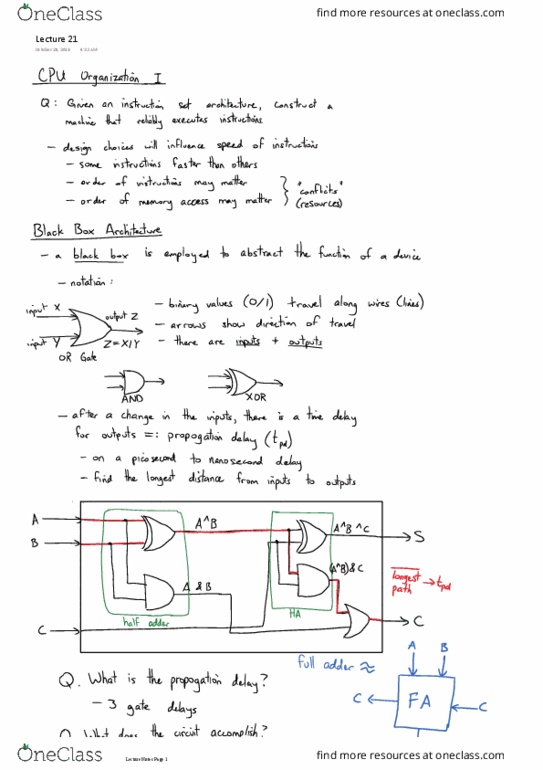 OneClass
find more resources at oneclass.com
Lecture 21
CPU Organization I
Q: Given an instruction set architecture, construct a
machine that reliably executes instructions.
- design choices will influence speed of instructions
- some instructions faster than others
- order of instructions may matter
- order of memory access may matter
"conflicts"
(resources)
Black Box Architecture
- a black box is employed to abstract the function of a device
- notation:
input X
output Z
input Y
Z=X|Y
OR Gate
- binary values (0/1) travel along wires (lines)
- arrows show direction of travel
- there are inputs + outputs
AND
XOR
- after a change in the inputs, there is a time delay
for outputs =: propogation delay (tpd)
- on a picosecond to nanosecond delay
- find the longest distance from inputs to outputs
A
B
C
A^B
A & B
half adder
A^B^C
(A^B)&C
HA
S
C
longest path → tpd
full adder ≈
A
B
C
FA
C
Q. What is the propogation delay?
- 3 gate delays
Q What does the circuit accomplish?
Lecture Notes Page 1
OneClass
find more resources at oneclass.com